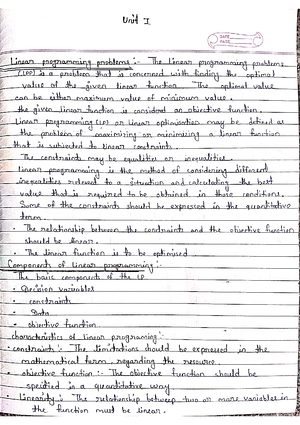 Unit I
DATE
PAGE
Linear programming problems :- The Linear programming problems
(LPP) is a problem that is concerned with finding the optimal
value of the given linear function. The optimal value
can be either maximum value of minimum value.
the given linear function is considerd an objective function.
Linear programming (LP) or linear optimisation may be defined as
the problem of maximizing or minimizing a linear function
that is subjected to linear constraint.
The constraints may be equalities or inequalities.
Linear programming is the method of considering different
inequalities relevent to a situation and calculating the best
value that is required to be obtained in those conditions.
Some of the constraints should be expressed in the quantitative
term.
• The relationship between the constraints and the objective function
should be linear.
• The linear function is to be optimised
Components of linear programming :-
The basic components of the LP
• Decision variables
• constraints
• Data
• objective function
characteristics of linear programing :-
• constraints :- The limitations should be expressed in the
mathematical form, regarding the resource.
• objective function :- The objective function should be
specified in a quantitative way.
• Linearity :- The relationship between two or more variables in
the function must be linear.